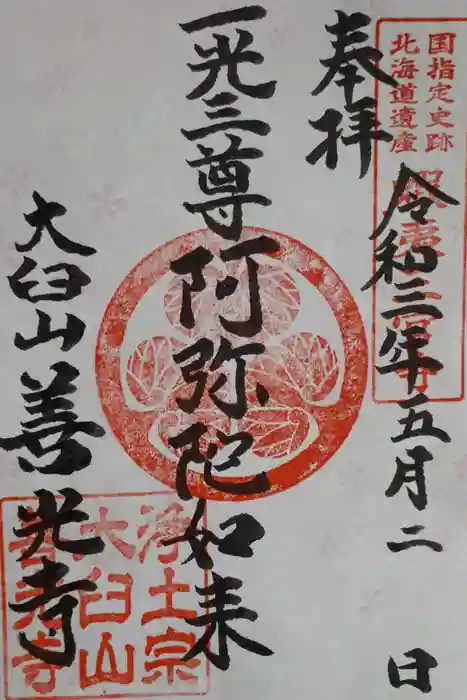 奉拝
国指定史跡
北海道遺産
令和三年五月二日
一光三尊阿弥陀如来
大臼山善光寺
浄土宗
大臼山
善光寺